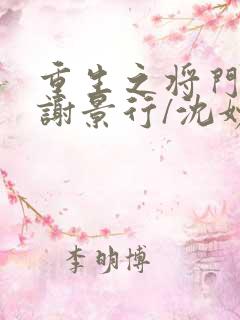 重生之将门
謝景行/沈妙
李明博